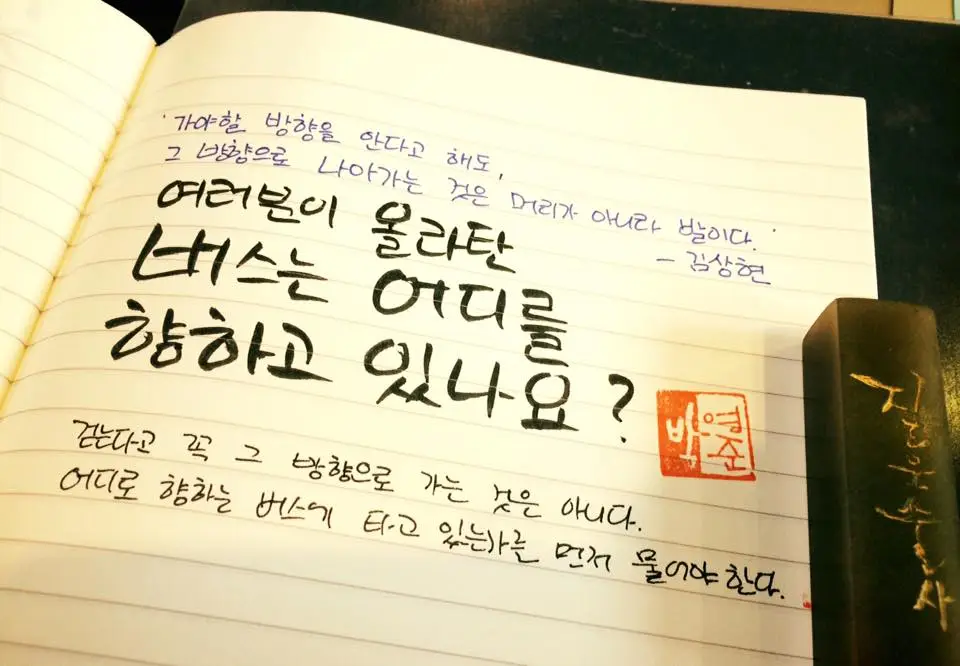 '가야할 방향을 안다고 해도,
그 방향으로 나아가는 것은 머리가 아니라 발이다.'
- 김상현
여러분이 올라탄
버스는 어디를
향하고 있나요?
걷는다고 꼭 그 방향으로 가는 것은 아니다.
어디로 향하는 버스에 타고 있는가를 먼저 물어야 한다.
박영준
질문술사